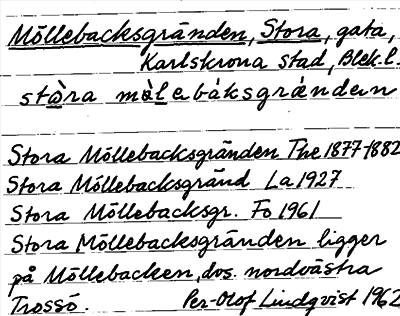 Möllebacksgränden, Stora, gata,
Karlskrona stad, Blek.l.
stὼra mὰlebáksgránden
Stora Möllebacksgränden The 1877-1882
Stora Möllebacksgränd La 1927
Stora Möllebacksgr. Fo 1961
Stora Möllebacksgränden ligger
på Möllebacken, dvs. nordvästra
Trossö. Per-Olof Lindqvist 1962